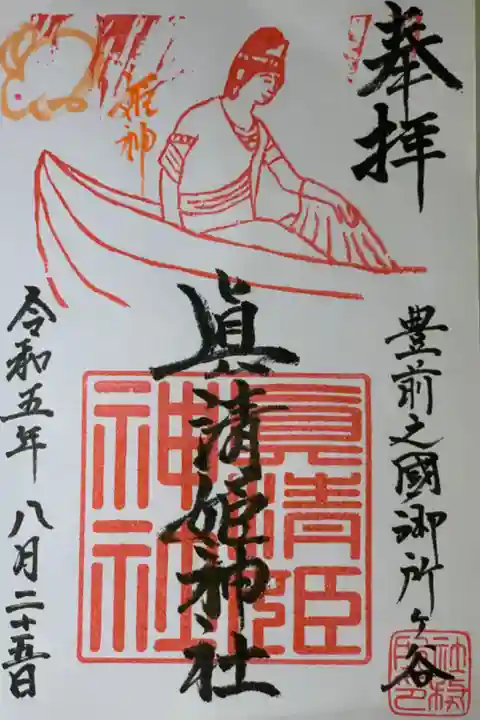 奉拝
豊前之國御所ヶ谷
眞清姫神社
眞清姫
神社
姫神
令和五年八月二十五日
社務
所印